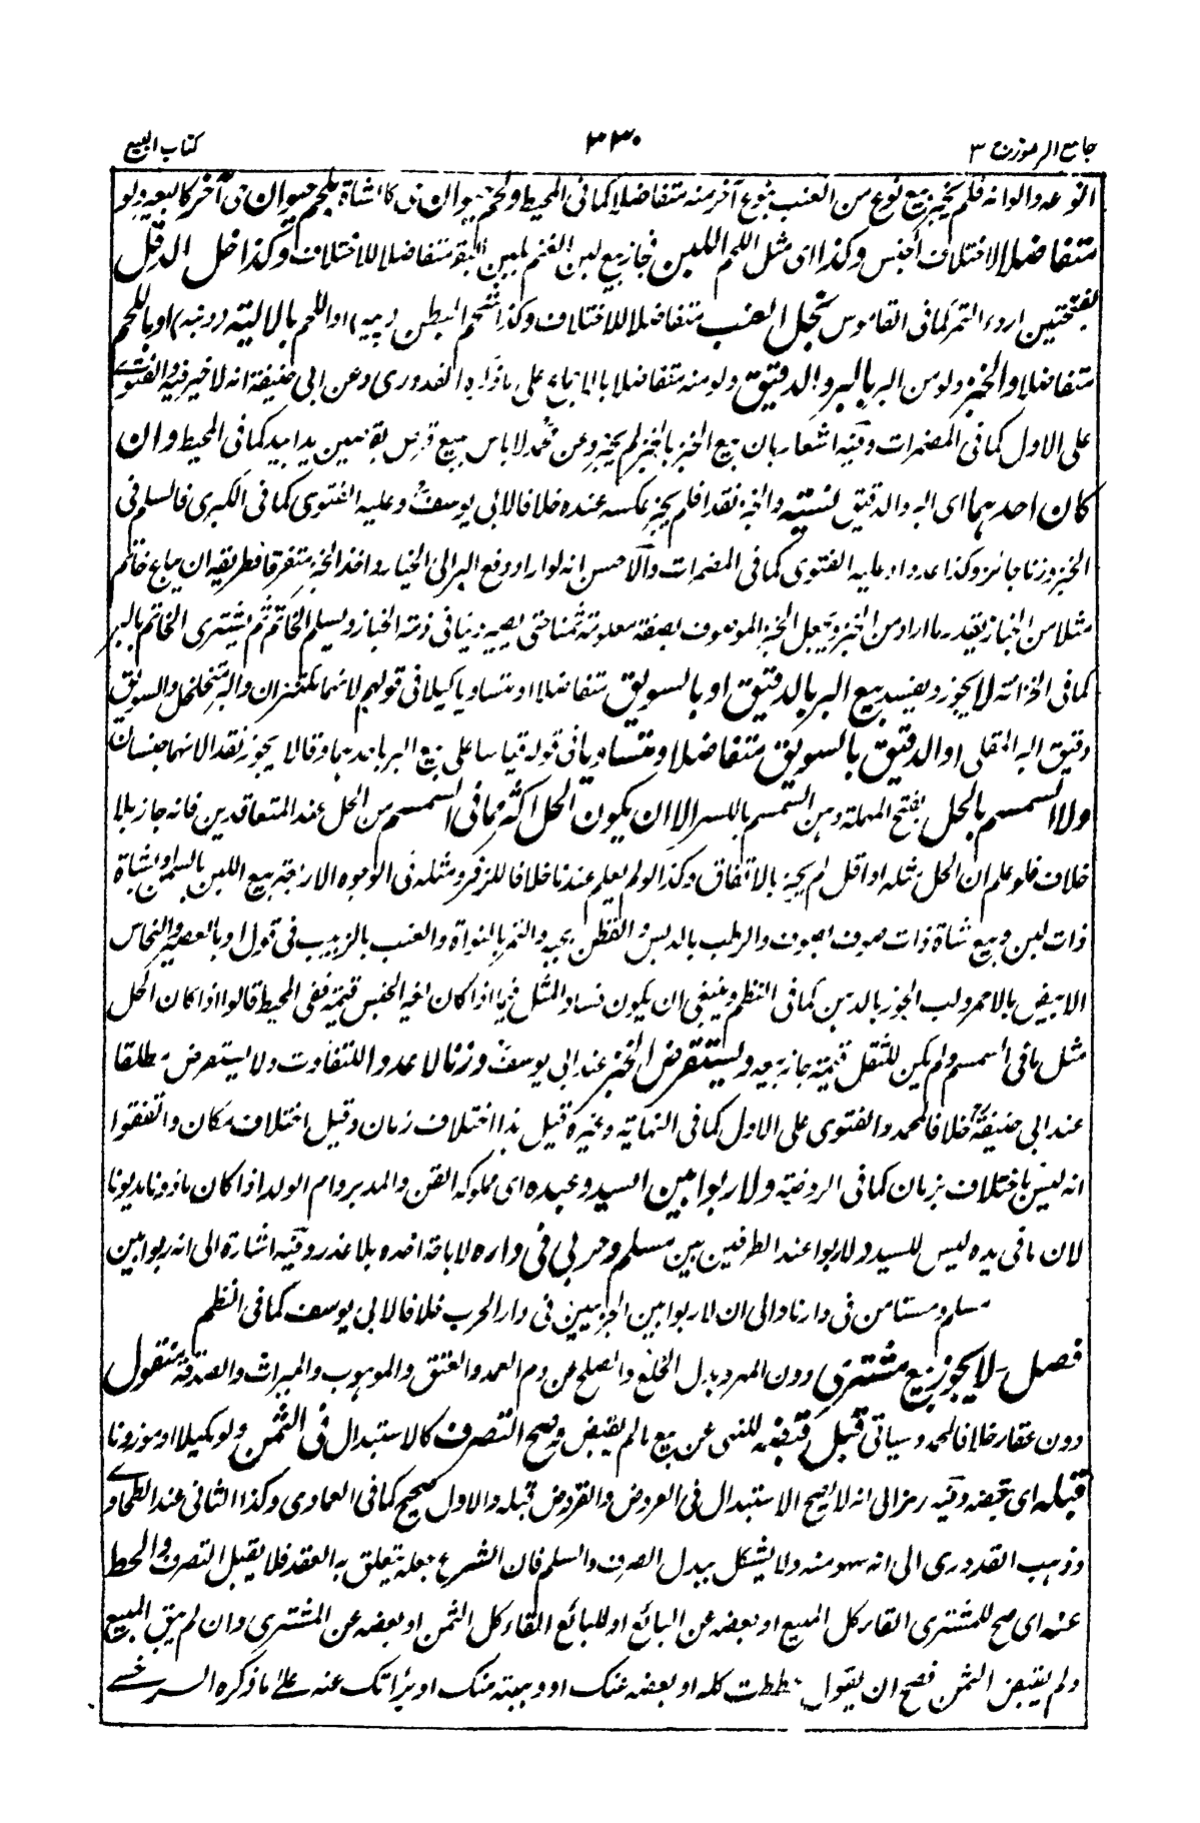 جامع الرموز ج ٣
٣٣٠
كتاب البيع
انوعه والوانه فلم يجز بيع نوع من العنب بنوع آخر منه متفاضلا كما فى المحيط ولحم حيوان كالشاة بلحم حيوان آخر كالبعير ولو
متفاضلا لاختلاف الجنس وكذا اى مثل اللحم اللبن فجاز بيع لبن الغنم بلبن البقر متفاضلا للاختلاف وكذا خل الدقل
بفتحتين اردء التمر كما فى القاموس بخل العنب متفاضلا للاختلاف وكذا شحم البطن (پيه) او اللحم بالالية (دونبه) او باللحم
متفاضلا والخبز ولو من البر بالبر والدقيق ولو منه متفاضلا بالاجماع على ما ذكره القدورى وعن ابى حنيفة انه لا خير فيه والفتوى
على الاول كما فى المضمرات وفيه اشعار بان بيع الخبز بالخبز لم يجز وعن محمد لا باس ببيع قرص بقرصين يدا بيد كما فى المحيط وان
كان احدهما اى البر والدقيق نسئة والخبز نقدا فلم يجز عكسه عنده خلافا لابى يوسف وعليه الفتوى كما فى الكبرى فالسلم فى
الخبز وزنا جائز وكذا عددا وعليه الفتوى كما فى المضمرات والاحسن انه لو اراد دفع البر الى الخباز واخذ الخبز متفرقا فطريقه ان يباع خاتم
مثلا من الخباز بقدر ما اراد من الخبز ويجعل الخبز الموصوف بصفة معلومة ثمنا حتى يصير دينا فى ذمة الخباز ويسلم الخاتم ثم يشترى الخاتم بالبر
كما فى الخزانة لا يجوز ويفسد بيع البر بالدقيق او بالسويق متفاضلا او متساويا كيلا فى قولهم لانهما مكتنزان والبر متخلخل والسويق
دقيق البر المقلى او الدقيق بالسويق متفاضلا ومتساويا فى قوله قياسا على بيع البر وقالا يجوز نقدا لانهما جنسان
ولا السمسم بالحل بفتح المهملة دهن السمسم بالكسر الا ان يكون الحل اكثر مما فى السمسم من الحل عند المتعاقدين فانه جاز بلا
خلاف فلو علم ان الحل مثله او اقل لم يجز بالاتفاق وكذا لو لم يعلم عندنا خلافا للزفر ومثله فى الوجوه الاربعة بيع اللبن بالسمن وبشاة
ذات لبن وبيع شاة ذات صوف بصوف والرطب بالدبس والقطن بحبه والتمر بالنواة والعنب بالزبيب فى قول او بالعصير والنحاس
الابيض بالاحمر ولب الجوز بالدهن كما فى النظم وينبغى ان يكون فساد المثل فيما اذا كان لغير الجنس قيمة ففى المحيط قالوا اذا كان الحل
مثل ما فى السمسم ولم يكن للثقل قيمة جاز بيعه ويستقرض الخبز عند ابى يوسف وزنا لا عددا للتفاوت ولا يستقرض مطلقا
عند ابى حنيفة خلافا لمحمد والفتوى على الاول كما فى النهاية وغيره قيل هذا اختلاف زمان وقيل اختلاف مكان واتفقوا
انه ليس باختلاف برهان كما فى الروضة ولا ربوا بين السيد وعبده اى مملوكه القن والمدبر وام الولد اذا كان ماذونا مديونا
لان ما فى يده ليس للسيد ولا ربوا عند الطرفين بين مسلم وحربى فى داره لاباحة اخذه بلا غدر وفيه اشارة الى انه ربوا بين
مسلم ومستامن فى دارنا والى ان لا ربوا بين الحربيين فى دار الحرب خلافا لابى يوسف كما فى النظم
فصل لا يجوز بيع مشترى دون المهر وبدل الخلع والصلح عن دم العمد والعتق والموهوب والميراث والصدقة منقول
دون عقار خلافا لمحمد وسياتى قبل قبضه للنهى عن بيع ما لم يقبض وصح التصرف كالاستبدال فى الثمن ولو مكيلا او موزونا
قبله اى قبضه وفيه رمز الى انه لا يصح الاستبدال فى العروض والقروض قبله والاول صحيح كما فى العمادى وكذا الثانى عند الطحاوى
وذهب القدورى الى انه سهو منه ولا يشكل ببدل الصرف والسلم فان الشرع جعله يتعلق به العقد فلا يقبل التصرف والحط
عنه اى صح للمشترى القاء كل المبيع او بعضه عن البائع او للبائع القاء كل الثمن او بعضه عن المشترى وان لم يبق المبيع
ولم يقبض الثمن فصح ان يقول حططت كله او بعضه عنك او وهبته منك او برأتك عنه على ما ذكره السرخسى